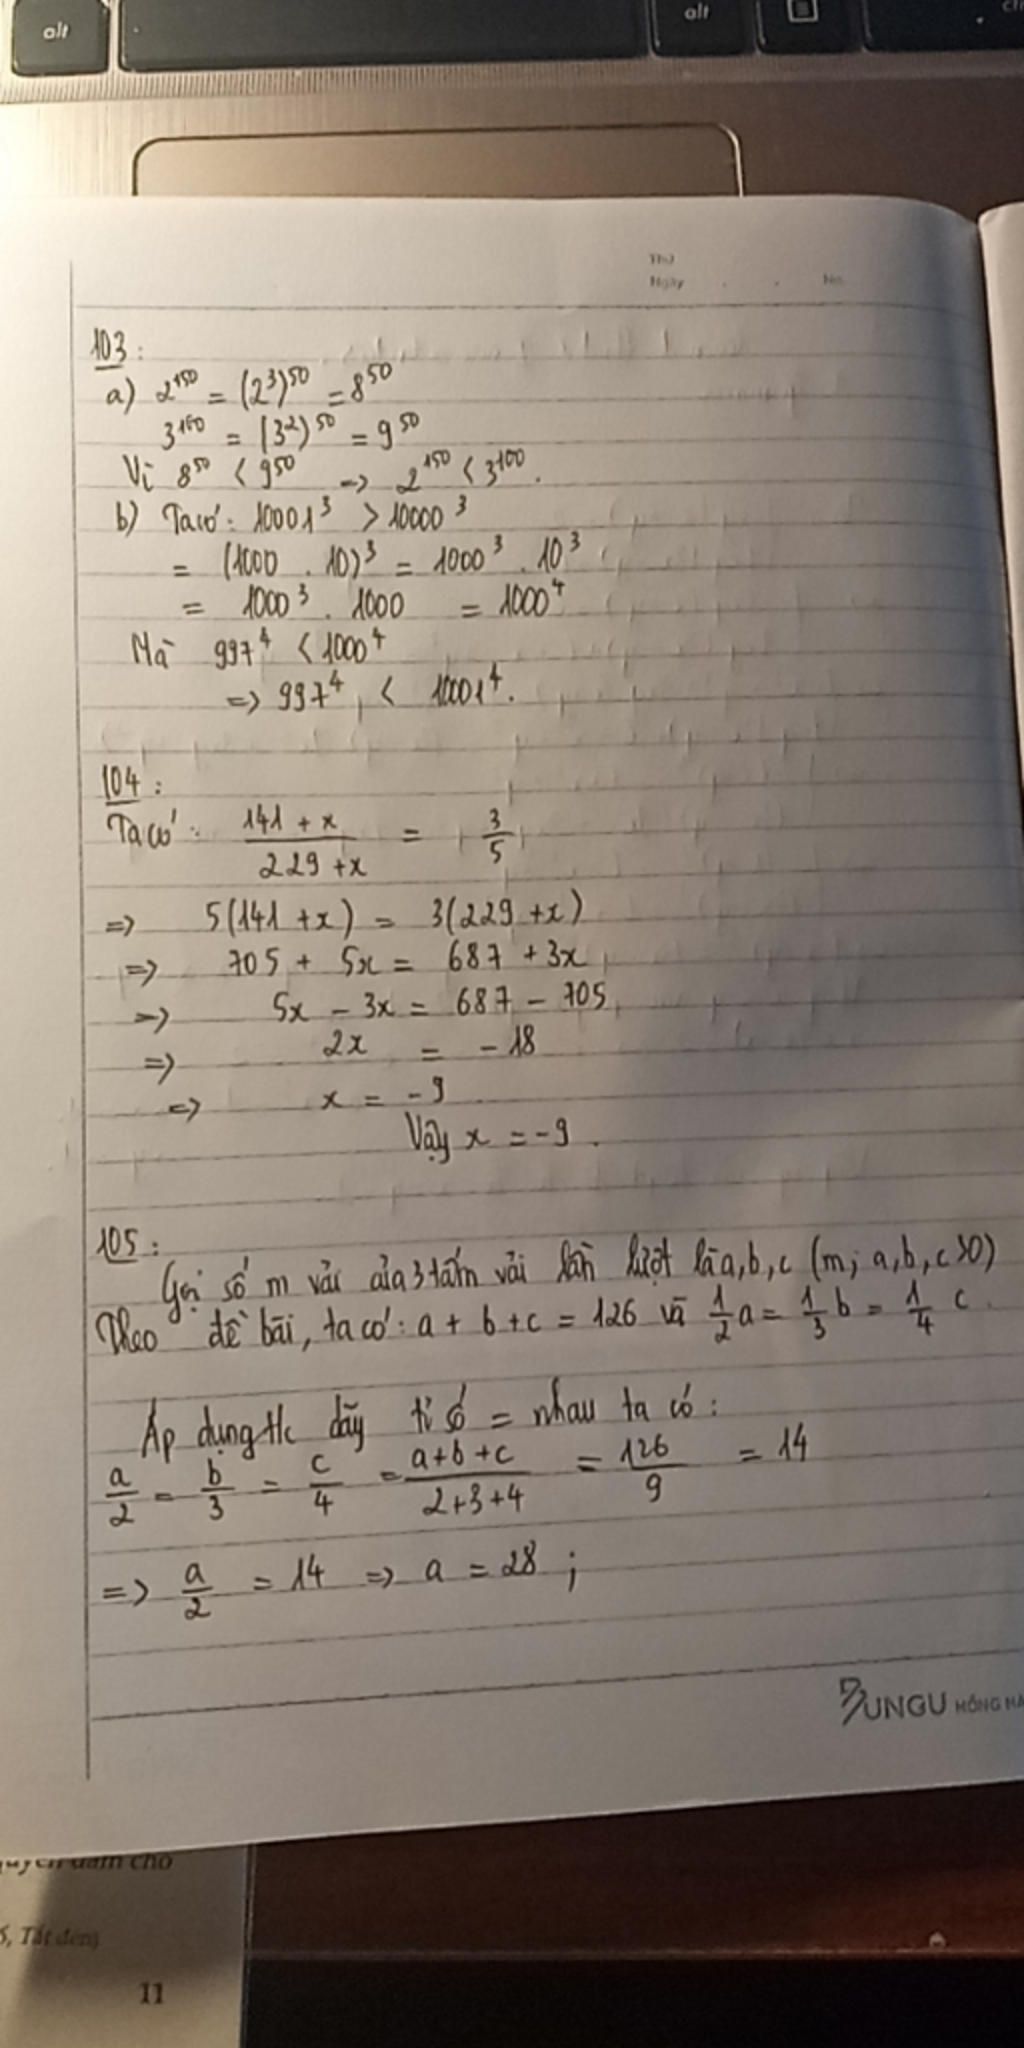 alt
alt
Thứ
Ngày . . No.
103:
a) 2^150 = (2^3)^50 = 8^50
3^100 = (3^2)^50 = 9^50
Vì 8^50 < 9^50 => 2^150 < 3^100.
b) Ta có: 10001^3 > 10000^3
= (1000 . 10)^3 = 1000^3 . 10^3
= 1000^3 . 1000 = 1000^4
Mà 997^4 < 1000^4
=> 997^4 < 10001^4.
104:
Ta có: (141 + x)/(229 + x) = 3/5
=> 5(141 + x) = 3(229 + x)
=> 705 + 5x = 687 + 3x
=> 5x - 3x = 687 - 705
=> 2x = - 18
=> x = - 9
Vậy x = -9.
105:
Gọi số m vải của 3 tấm vải lần lượt là a, b, c (m; a, b, c > 0)
Theo đề bài, ta có: a + b + c = 126 và 1/2 a = 1/3 b = 1/4 c.
Áp dụng t/c dãy tỉ số = nhau ta có:
a/2 = b/3 = c/4 = (a+b+c)/(2+3+4) = 126/9 = 14
=> a/2 = 14 => a = 28 ;
UNGU HỒNG HÀ
cho
Tắt đèn
11